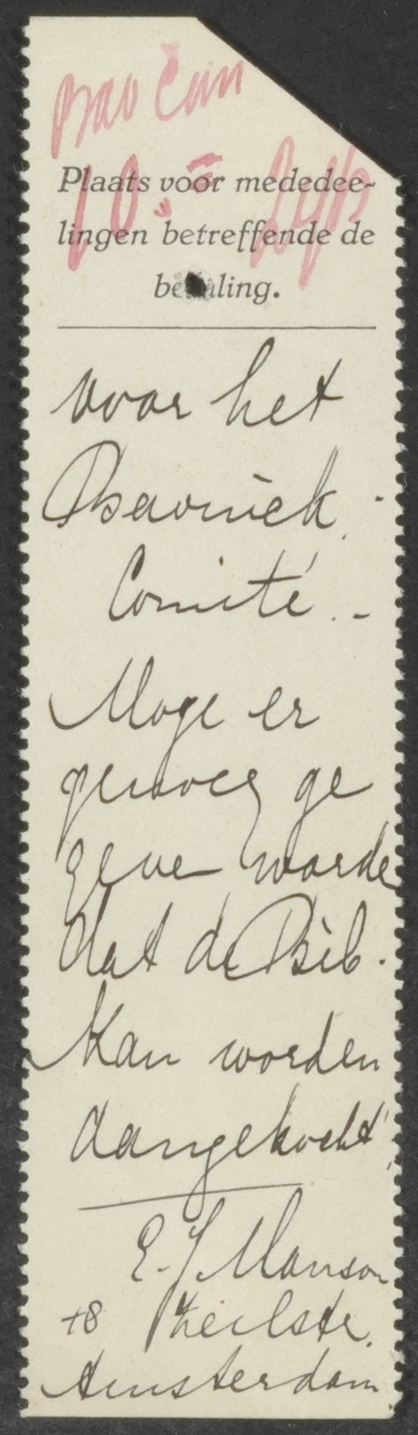 Plaats voor mededee-
lingen betreffende de
betaling.
10.=
voor het
Bavinck-
Comité.-
Moge er
genoeg ge
geve worde
dat de Bib.
kan worden
aangekocht.
E. J. Manson
Amsterdam